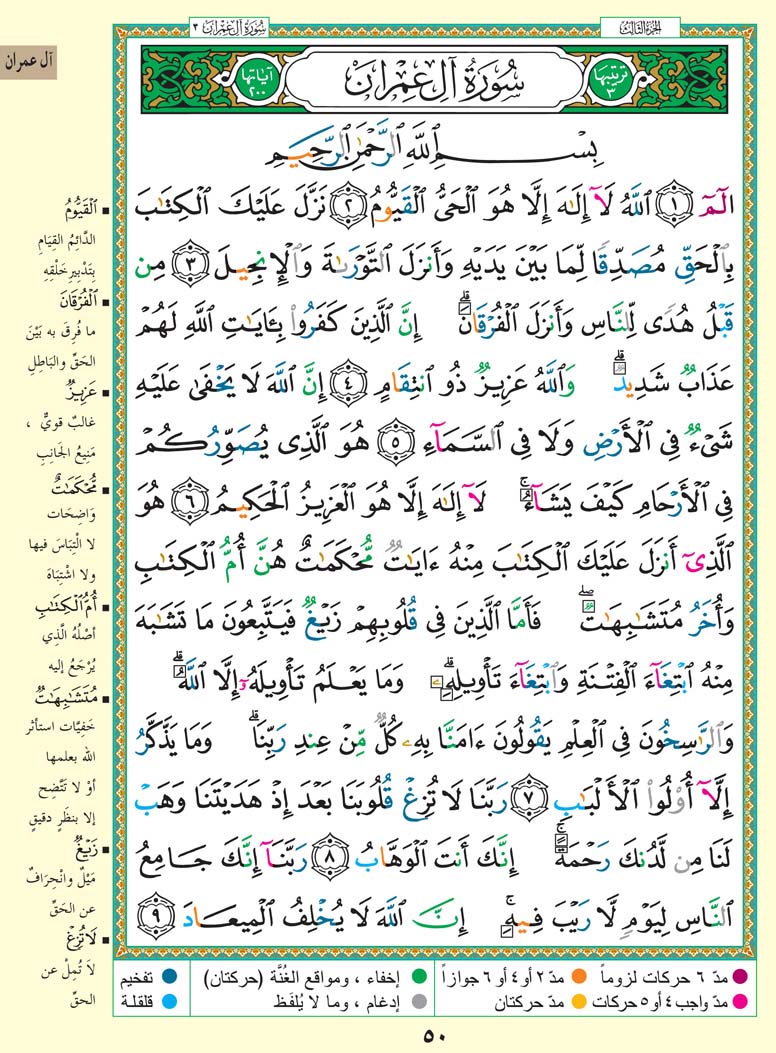 الجزء الثالث
سورة آل عمران ٣
آل عمران
ترتيبها ٣
سُورَةُ آلِ عِمْرَان
آياتها ٢٠٠
بِسْمِ ٱللَّهِ ٱلرَّحْمَٰنِ ٱلرَّحِيمِ
الٓمٓ ١ ٱللَّهُ لَآ إِلَٰهَ إِلَّا هُوَ ٱلْحَىُّ ٱلْقَيُّومُ ٢ نَزَّلَ عَلَيْكَ ٱلْكِتَٰبَ
بِٱلْحَقِّ مُصَدِّقًا لِّمَا بَيْنَ يَدَيْهِ وَأَنزَلَ ٱلتَّوْرَىٰةَ وَٱلْإِنجِيلَ ٣ مِن
قَبْلُ هُدًى لِّلنَّاسِ وَأَنزَلَ ٱلْفُرْقَانَ ۗ إِنَّ ٱلَّذِينَ كَفَرُوا۟ بِـَٔايَٰتِ ٱللَّهِ لَهُمْ
عَذَابٌ شَدِيدٌ ۗ وَٱللَّهُ عَزِيزٌ ذُو ٱنتِقَامٍ ٤ إِنَّ ٱللَّهَ لَا يَخْفَىٰ عَلَيْهِ
شَىْءٌ فِى ٱلْأَرْضِ وَلَا فِى ٱلسَّمَآءِ ٥ هُوَ ٱلَّذِى يُصَوِّرُكُمْ
فِى ٱلْأَرْحَامِ كَيْفَ يَشَآءُ ۚ لَآ إِلَٰهَ إِلَّا هُوَ ٱلْعَزِيزُ ٱلْحَكِيمُ ٦ هُوَ
ٱلَّذِىٓ أَنزَلَ عَلَيْكَ ٱلْكِتَٰبَ مِنْهُ ءَايَٰتٌ مُّحْكَمَٰتٌ هُنَّ أُمُّ ٱلْكِتَٰبِ
وَأُخَرُ مُتَشَٰبِهَٰتٌ ۖ فَأَمَّا ٱلَّذِينَ فِى قُلُوبِهِمْ زَيْغٌ فَيَتَّبِعُونَ مَا تَشَٰبَهَ
مِنْهُ ٱبْتِغَآءَ ٱلْفِتْنَةِ وَٱبْتِغَآءَ تَأْوِيلِهِۦ ۗ وَمَا يَعْلَمُ تَأْوِيلَهُۥٓ إِلَّا ٱللَّهُ ۗ
وَٱلرَّٰسِخُونَ فِى ٱلْعِلْمِ يَقُولُونَ ءَامَنَّا بِهِۦ كُلٌّ مِّنْ عِندِ رَبِّنَا ۗ وَمَا يَذَّكَّرُ
إِلَّآ أُو۟لُوا۟ ٱلْأَلْبَٰبِ ٧ رَبَّنَا لَا تُزِغْ قُلُوبَنَا بَعْدَ إِذْ هَدَيْتَنَا وَهَبْ
لَنَا مِن لَّدُنكَ رَحْمَةً ۚ إِنَّكَ أَنتَ ٱلْوَهَّابُ ٨ رَبَّنَآ إِنَّكَ جَامِعُ
ٱلنَّاسِ لِيَوْمٍ لَّا رَيْبَ فِيهِ ۚ إِنَّ ٱللَّهَ لَا يُخْلِفُ ٱلْمِيعَادَ ٩
ٱلْقَيُّومُ
الدَّائِمُ القِيَامِ
بِتَدْبِيرِ خَلْقِهِ
ٱلْفُرْقَانَ
ما فُرِقَ به بَيْنَ
الحَقِّ والبَاطِلِ
عَزِيزٌ
غالبٌ قويٌّ ،
مَنِيعُ الجَانِبِ
مُّحْكَمَٰتٌ
وَاضِحَات
لا الْتِبَاسَ فيها
ولا اشْتِبَاهَ
أُمُّ ٱلْكِتَٰبِ
أَصْلُهُ الَّذِي
يُرْجَعُ إليه
مُتَشَٰبِهَٰتٌ
خَفِيَّات استأثر
الله بعلمها
أوْ لا تَتَّضِح
إلا بنظَرٍ دقيقٍ
زَيْغٌ
مَيْلٌ وانْحِرَافٌ
عن الحَقِّ
لَا تُزِغْ
لاَ تُمِلْ عن
الحقِّ
مدّ ٦ حركات لزوماً
مدّ ٢ أو ٤ أو ٦ جوازاً
إخفاء ، ومواقع الغُنَّة (حركتان)
تفخيم
مدّ واجب ٤ أو ٥ حركات
مدّ حركتان
إدغام ، وما لا يُلفَظ
قلقلة
٥٠